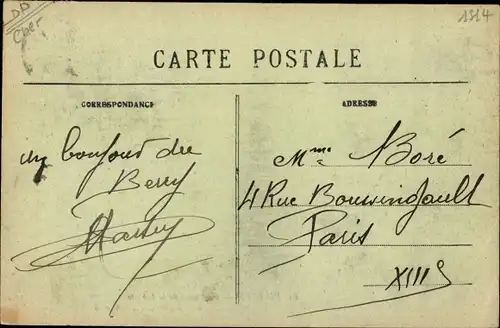 DD
Cher
1314
CARTE POSTALE
CORRESPONDANCE
un bonjour du
Berry
ADRESSE
Mme Boré
4 Rue Boussingault
Paris
XIIIe